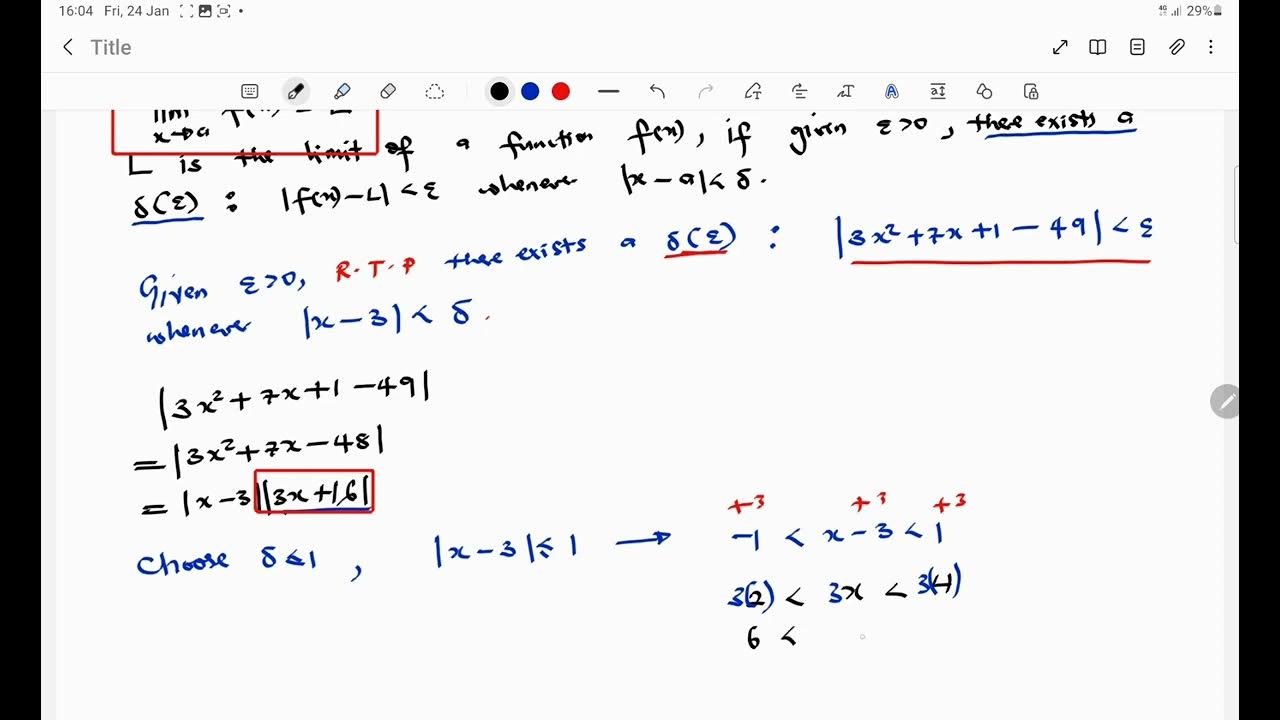 16:04 Fri, 24 Jan
4G 29%
Title
lim x→a f(x) = L
L is the limit of a function f(x), if given ε>0, there exists a
δ(ε) : |f(x)-L| < ε whenever |x-a| < δ.
Given ε>0, R.T.P there exists a δ(ε) : |3x²+7x+1-49| < ε
whenever |x-3| < δ.
|3x²+7x+1-49|
= |3x²+7x-48|
= |x-3||3x+16|
+3 +3 +3
Choose δ≤1, |x-3|≤1 → -1 < x-3 < 1
3(2) < 3x < 3(4)
6 <